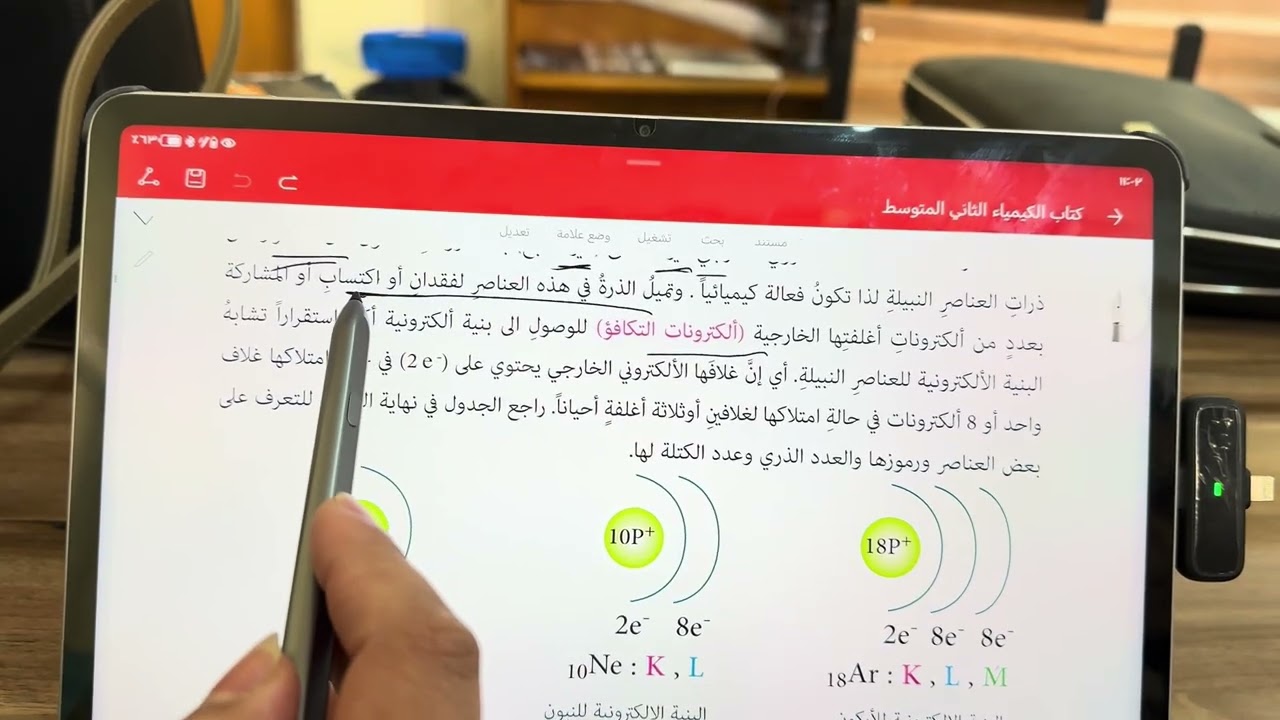 ٪٦٣
١٢:٠٢
كتاب الكيمياء الثاني المتوسط
مستند بحث تشغيل وضع علامة تعديل
ذراتِ العناصرِ النبيلةِ لذا تكونُ فعالة كيميائياً . وتميلُ الذرةُ في هذه العناصرِ لفقدان أو اكتسابِ أو المشاركة
بعددٍ من ألكتروناتِ أغلفتِها الخارجية (ألكترونات التكافؤ) للوصولِ الى بنية ألكترونية استقراراً تشابهُ
البنية الألكترونية للعناصرِ النبيلةِ. أي إنَّ غلافَها الألكتروني الخارجي يحتوي على (2 e⁻) في امتلاكها غلاف
واحد أو 8 ألكترونات في حالةِ امتلاكها لغلافينِ أوثلاثة أغلفةٍ أحياناً. راجع الجدول في نهاية للتعرف على
بعض العناصر ورموزها والعدد الذري وعدد الكتلة لها.
18P⁺ 10P⁺
2e⁻ 8e⁻ 8e⁻
2e⁻ 8e⁻
₁₈Ar : K , L , M
₁₀Ne : K , L
البنية الالكترونية للأركون
البنية الالكترونية للنيون